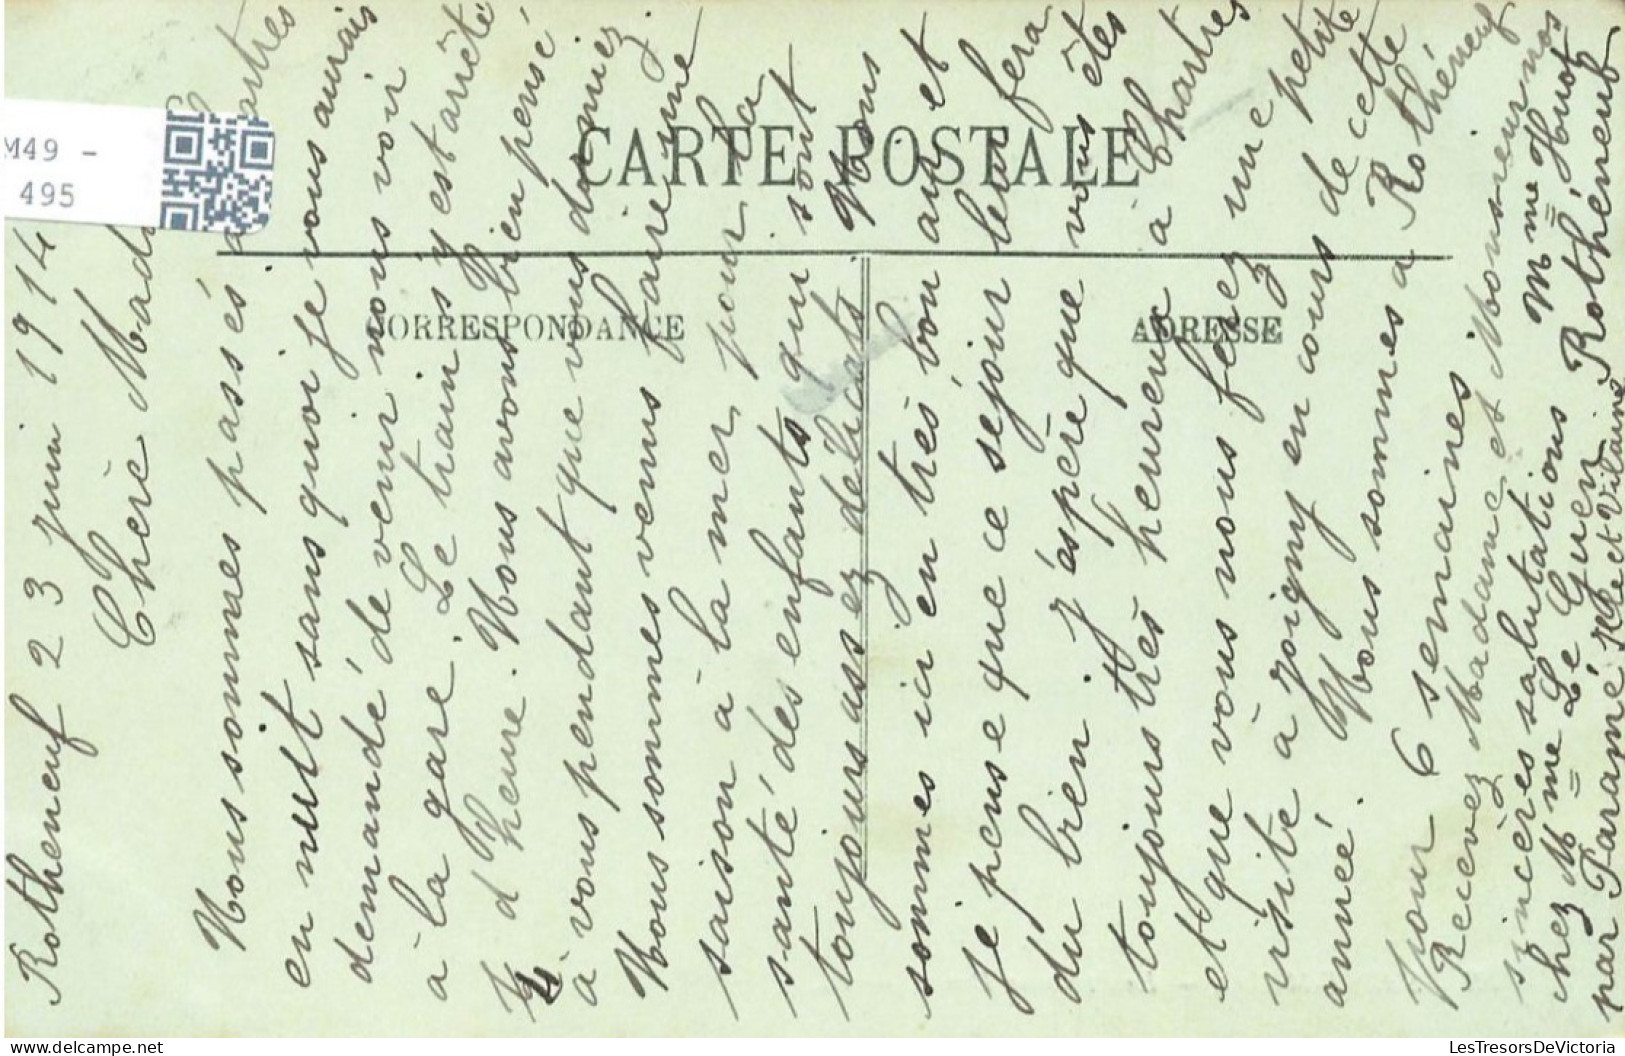 Rotheneuf 23 juin 1914
Chère Mad
Nous sommes passés à artres
en nuit sans quoi je vous aurais
demandé de venir nous voir
à la gare. Le train s'y est arrêté
1/4 d'heure. Nous avons bien pensé
à vous pendant que vous dormiez.
Nous sommes venus faire une
saison à la mer pour la
santé des enfants qui sont
toujours assez délicats. Nous
sommes ici en très bon air et
je pense que ce séjour leur fera
du bien. J'espère que vous êtes
toujours très heureux à Chartres
et que vous nous ferez une petite
visite à Joigny en cours de cette
année. Nous sommes à Rothéneuf
pour 6 semaines
Recevez Madame et Monsieur nos
sincères salutations Mme Huot
chez Mme Le Guen Rothéneuf
par Paramé Ille et Vilaine
CARTE POSTALE
CORRESPONDANCE
ADRESSE
M49 -
495
www.delcampe.net
LesTresorsDeVictoria